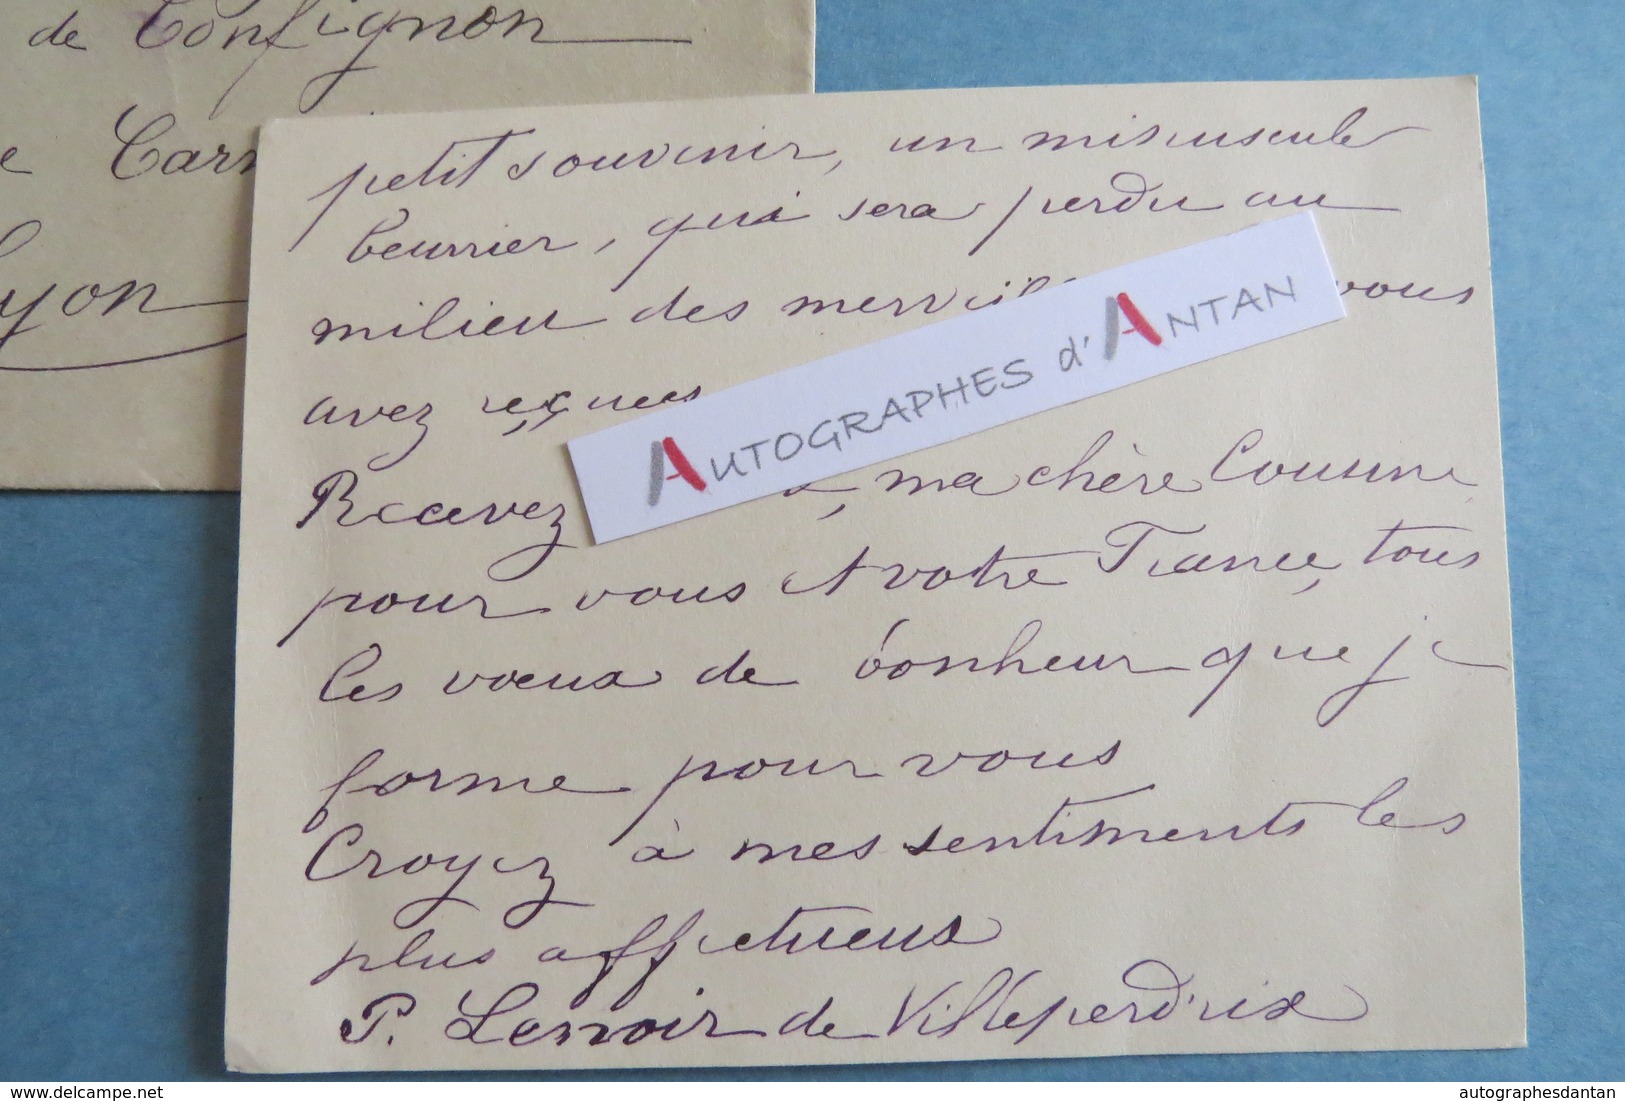 de Confignon
petit souvenir, un minuscule
beurrier, qui sera perdu au
milieu des vous
avez reçues
AUTOGRAPHES d'ANTAN
Recevez ma chère Cousine
pour vous et votre France, tous
les voeux de bonheur que je
forme pour vous
Croyez à mes sentiments les
plus affectueux
P. Lenoir de Villeperdrix
delcampe.net
autographesdantan